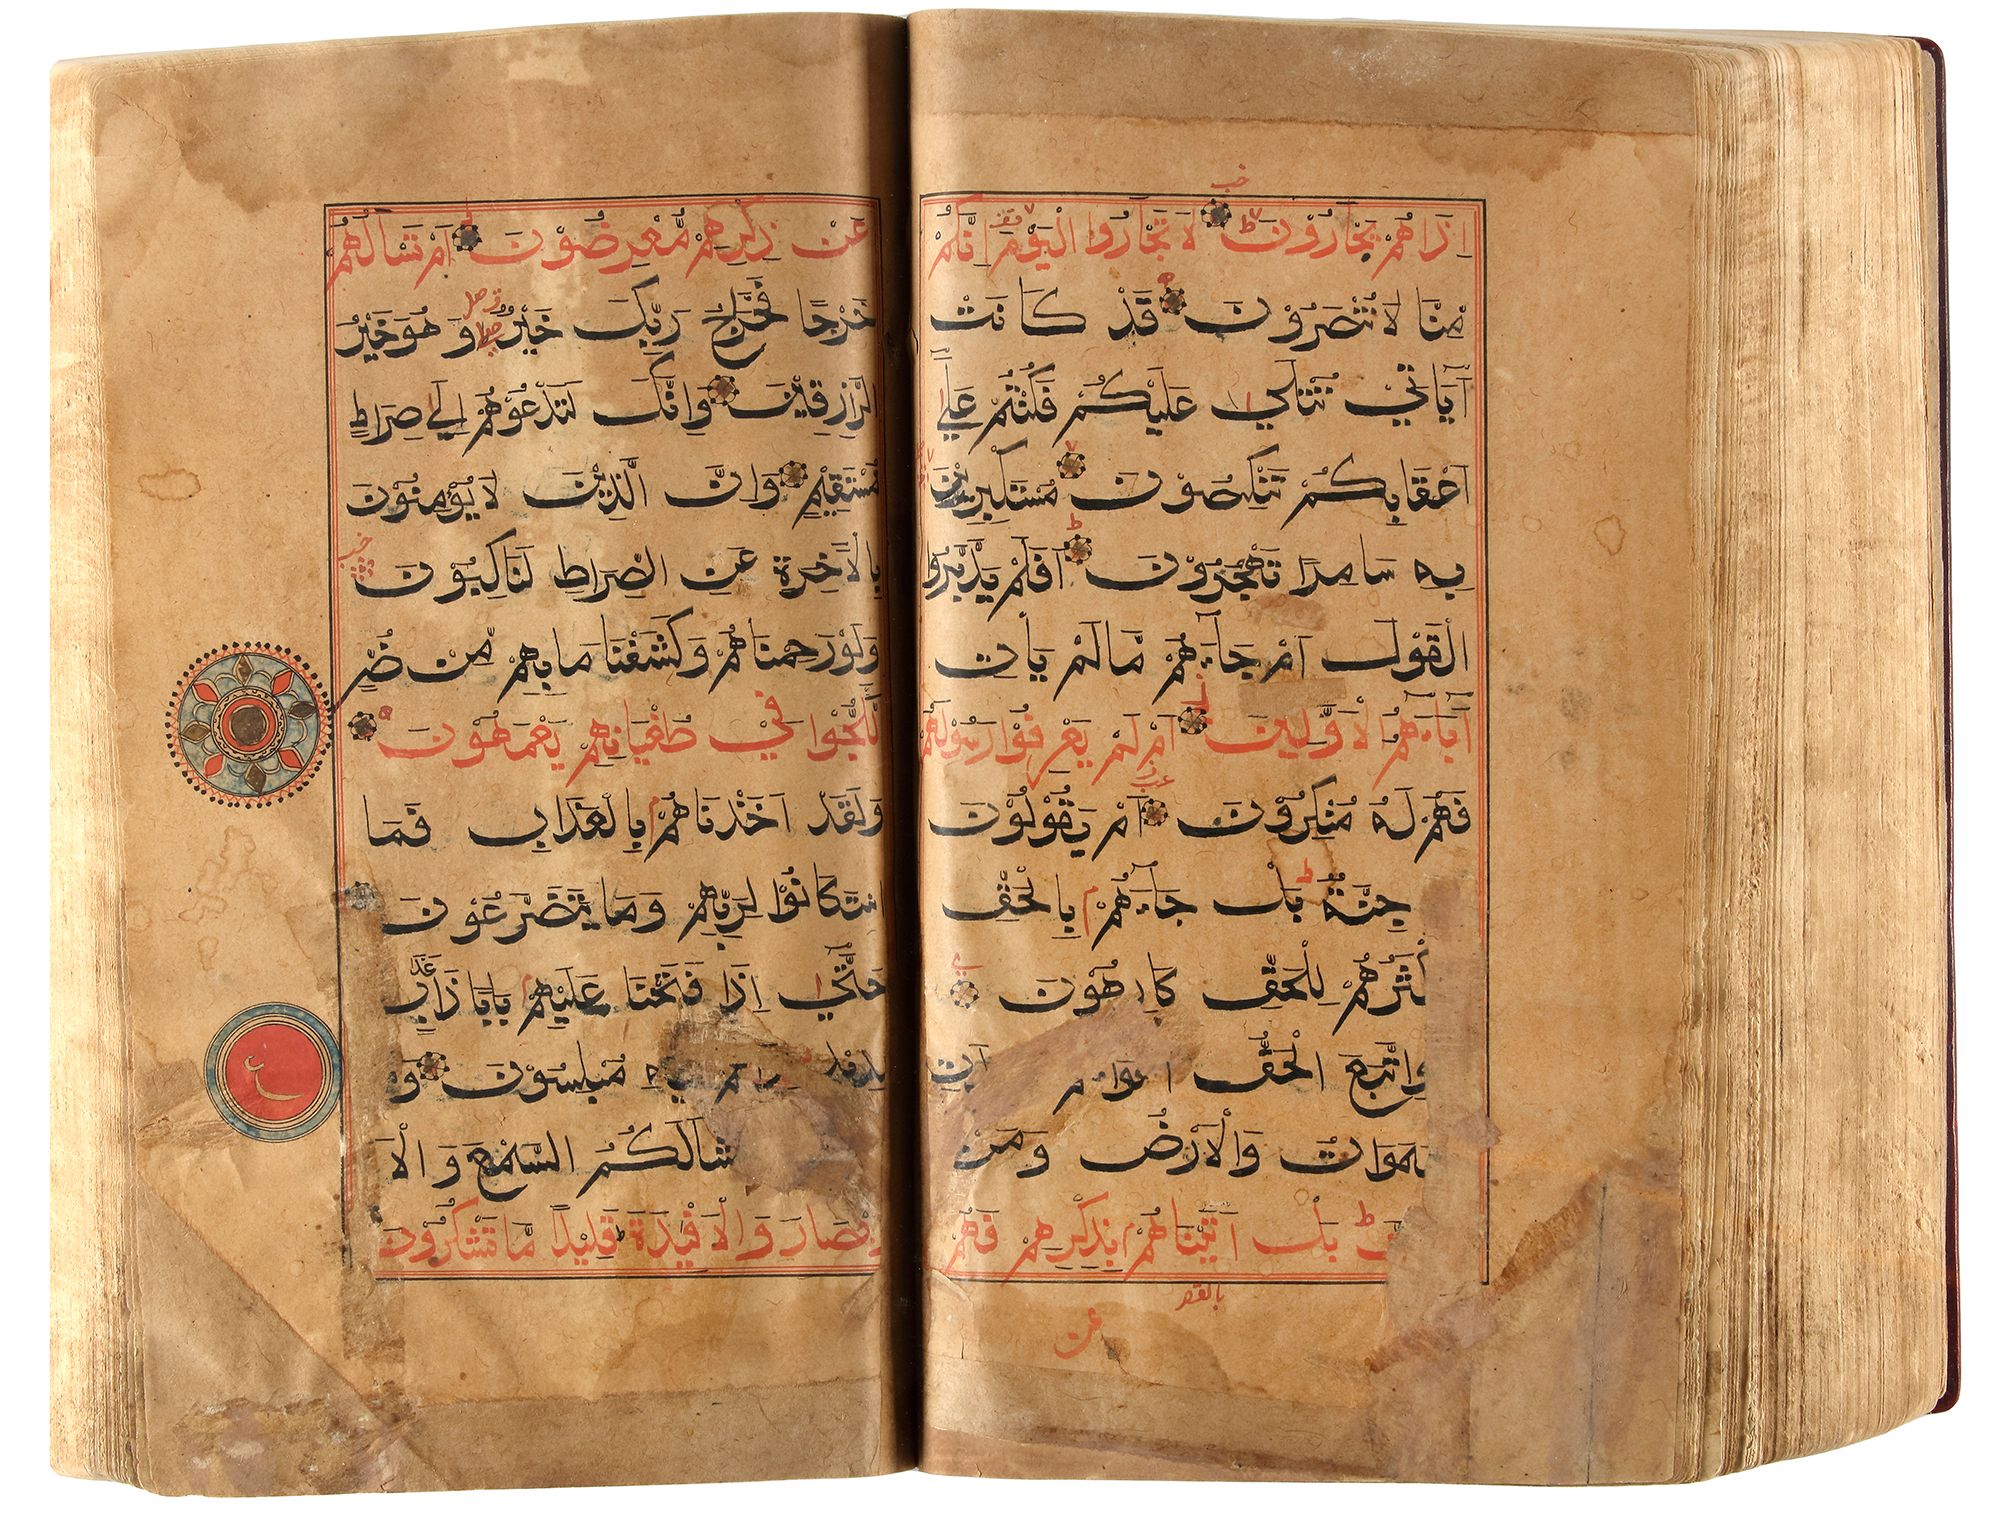 خب
اِذَا هُمْ يَجْارُوْنَ لَا تَجْارُوا الْيَوْمَ اِنَّكُمْ
مِنَّا لَا تُنْصَرُوْنَ قَدْ كَانَتْ
آيَاتِيْ تُتْلٰي عَلَيْكُمْ فَكُنْتُمْ عَلٰي
اَعْقَابِكُمْ تَنْكِصُوْنَ مُسْتَكْبِرِيْنَ
بِهٖ سَامِرًا تَهْجُرُوْنَ اَفَلَمْ يَدَّبَّرُوا
الْقَوْلَ اَمْ جَآءَهُمْ مَّا لَمْ يَاتِ
آبَاءَهُمُ الْاَوَّلِيْنَ اَمْ لَمْ يَعْرِفُوْا رَسُوْلَهُمْ
فَهُمْ لَهُ مُنْكِرُوْنَ اَمْ يَقُوْلُوْنَ
جِنَّةٌ بَلْ جَآءَهُمْ بِالْحَقِّ
ثَرُهُمْ لِلْحَقِّ كَارِهُوْنَ
وِاتَّبَعَ الْحَقُّ
مٰوَاتُ وَالْاَرْضُ وَمَنْ
بَلْ اَتَيْنَاهُمْ بِذِكْرِهِمْ فَهُمْ
عن
عَنْ ذِكْرِهِمْ مُّعْرِضُوْنَ اَمْ تَسْاَلُهُمْ
خَرْجًا فَخَرَاجُ رَبِّكَ خَيْرٌ وَهُوَ خَيْرُ
الرَّازِقِيْنَ وَاِنَّكَ لَتَدْعُوْهُمْ اِلٰي صِرَاطٍ
مُسْتَقِيْمٍ وَاِنَّ الَّذِيْنَ لَا يُوْمِنُوْنَ
بِالْاٰخِرَةِ عَنِ الصِّرَاطِ لَنَاكِبُوْنَ
وَلَوْ رَحِمْنَاهُمْ وَكَشَفْنَا مَا بِهِمْ مِّنْ ضُرٍّ
لَّلَجُّوْا فِيْ طُغْيَانِهِمْ يَعْمَهُوْنَ
وَلَقَدْ اَخَذْنَاهُمْ بِالْعَذَابِ فَمَا
اسْتَكَانُوْا لِرَبِّهِمْ وَمَا يَتَضَرَّعُوْنَ
حَتّٰي اِذَا فَتَحْنَا عَلَيْهِمْ بَابًا ذَا عَذَابٍ
مُبْلِسُوْنَ وَ
شَا لَكُمُ السَّمْعَ وَالْاَ
بْصَارَ وَالْاَفْئِدَةَ قَلِيْلًا مَّا تَشْكُرُوْنَ